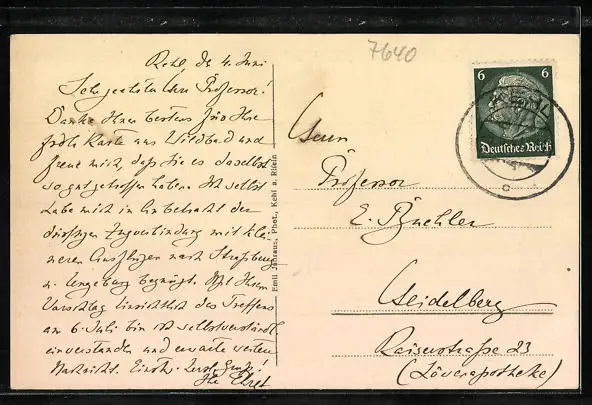 7640
Kehl d. 4. Juni
Sehr geehrter Herr Professor!
Danke Ihnen bestens für Ihre
frdl. Karte aus Wildbad und
freue mich, daß Sie es daselbst
so gut getroffen haben. Ich selbst
habe mich in Anbetracht der
dürftigen Zugverbindung mit klei-
neren Ausflügen nach Straßburg
u. Umgebung begnügt. Mit Ihrem
Vorschlag hinsichtlich des Treffens
am 6. Juli bin ich selbstverständl.
einverstanden und erwarte weitere
Nachricht. Einstw. herzl. Gruß
Ihr
Emil Jahraus, Phot., Kehl a. Rhein
6 6
Deutsches Reich
KEHL
Herrn
Professor
E. Buehler
Heidelberg
Kaiserstraße 23
(Löwenapotheke)